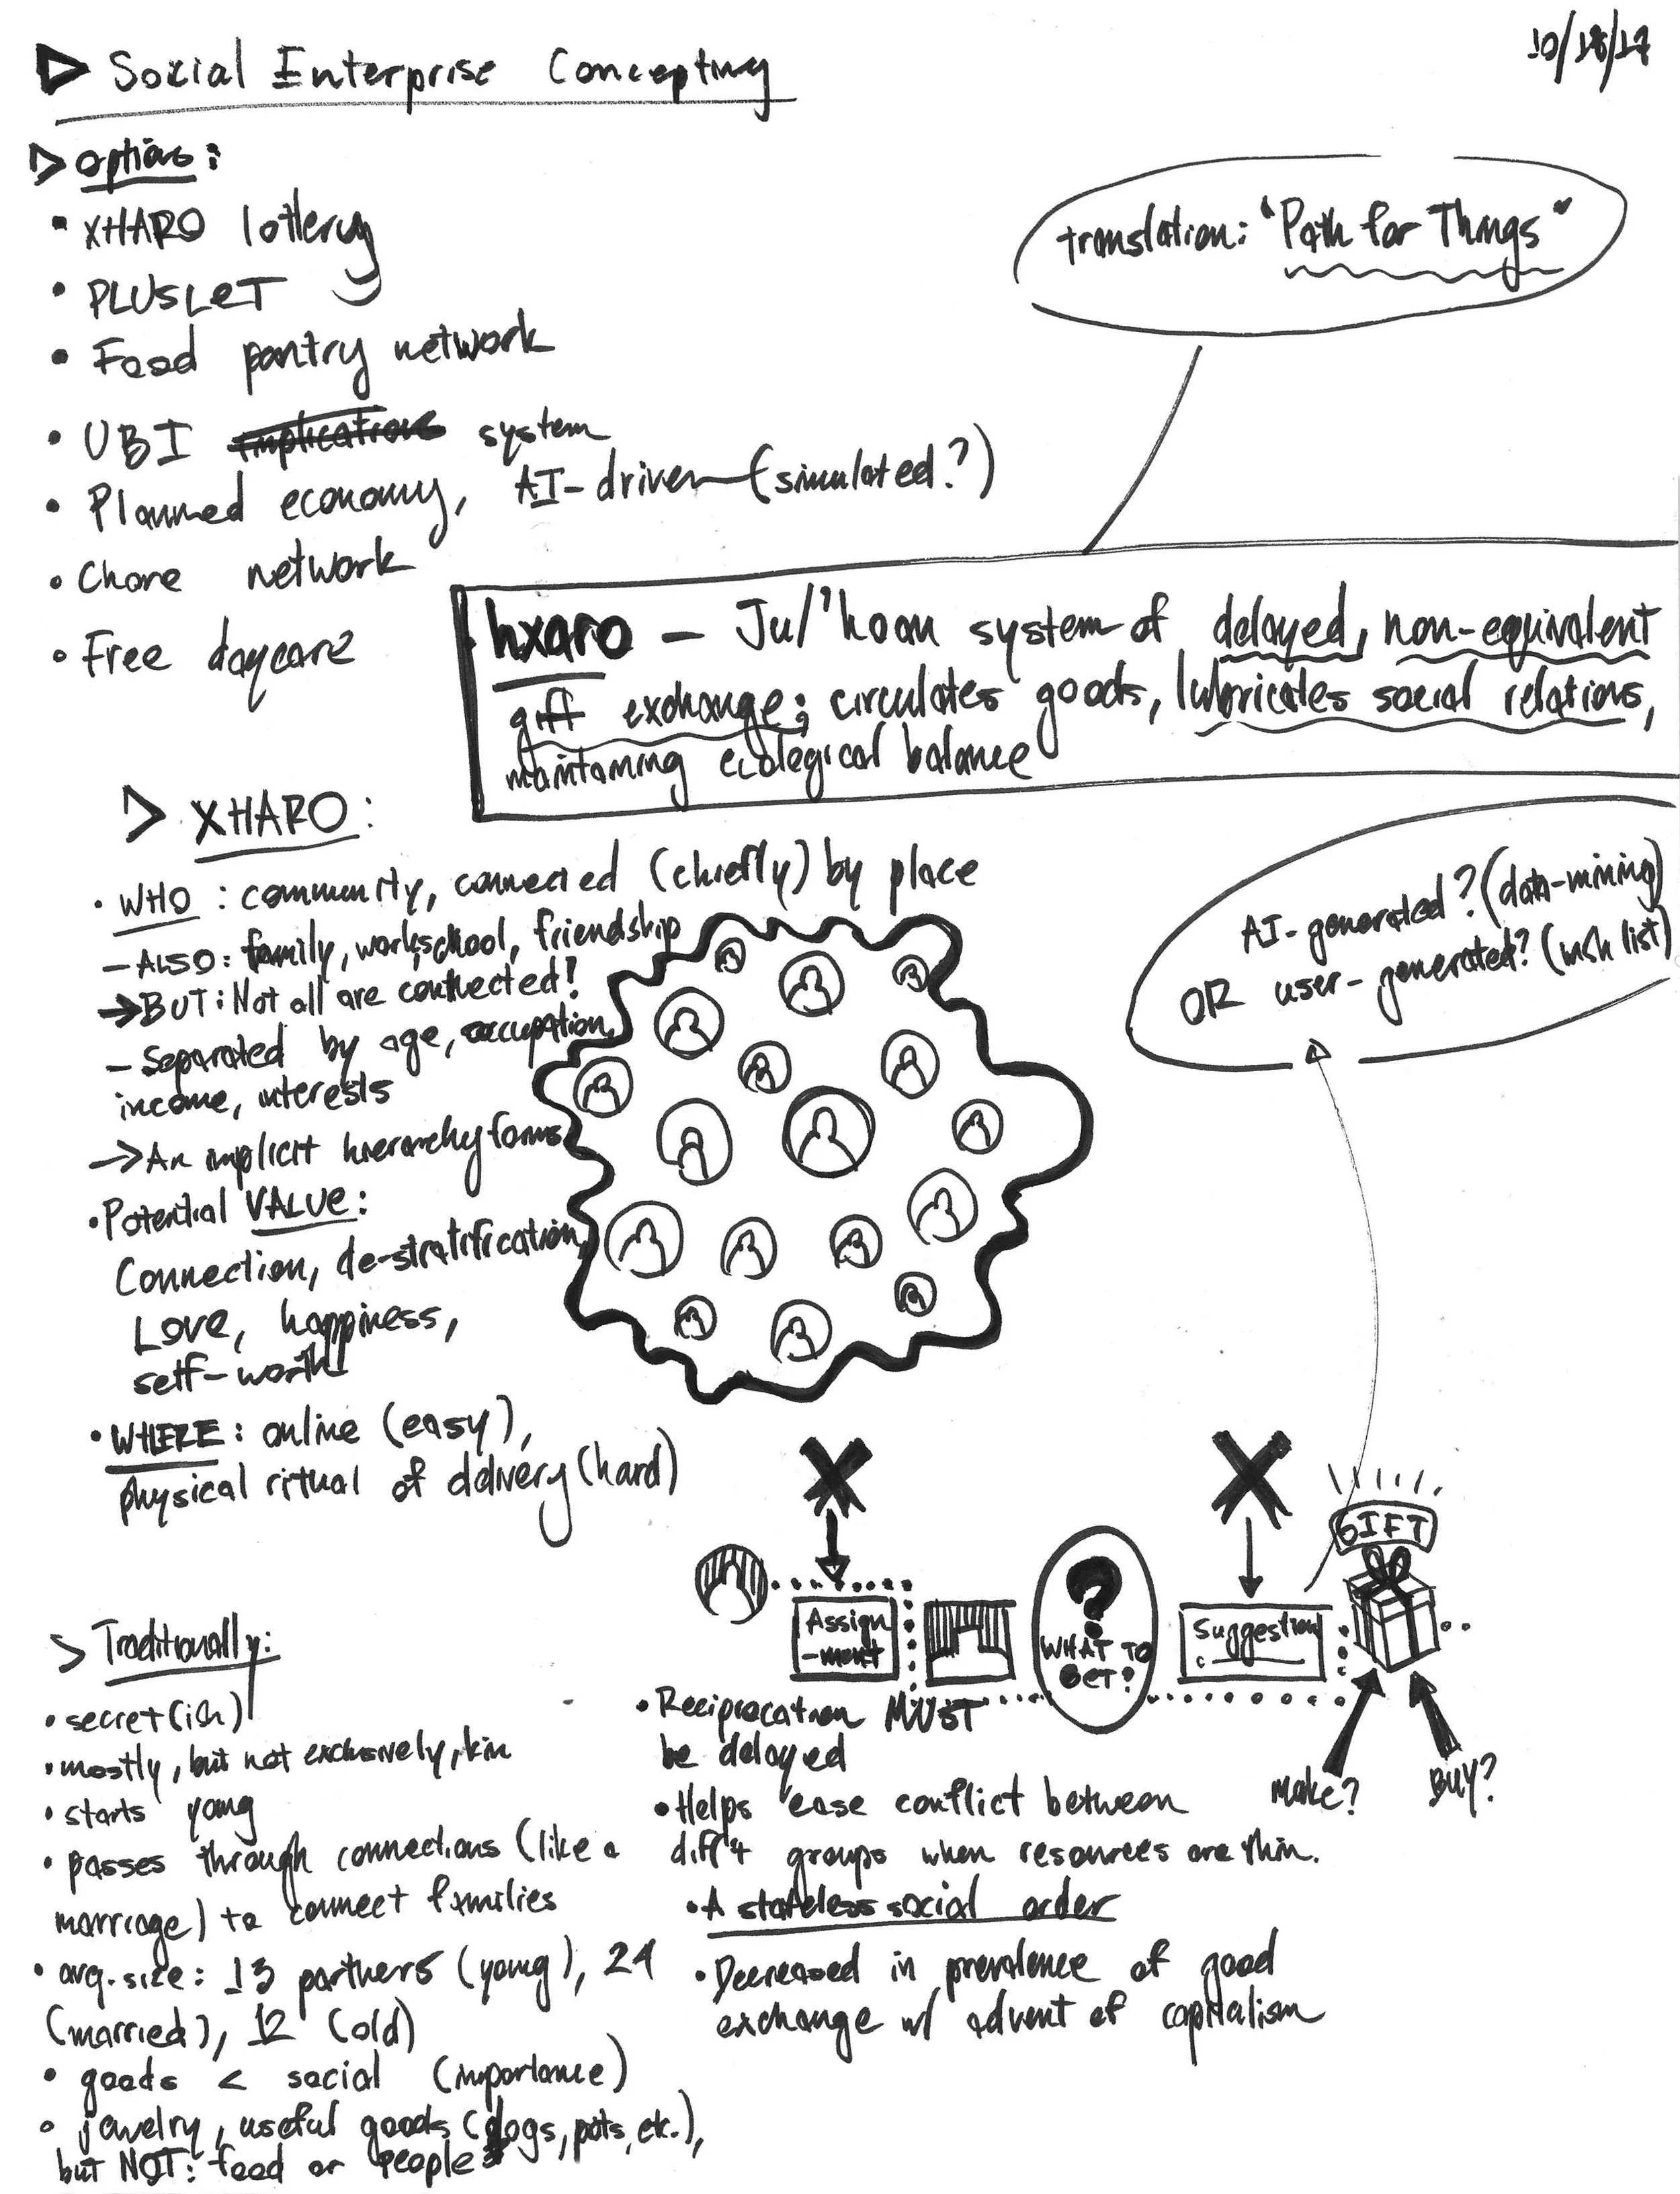 ▷ Social Enterprise Concepting
10/18/17
▷ options:
• XHARO lottery
• PLUSLET
• Food pantry network
• UBI implications system
• Planned economy, AI-driven (simulated?)
• Chore network
• Free daycare
translation: "Path for Things"
hxaro — Ju/'hoan system of delayed, non-equivalent
gift exchange; circulates goods, lubricates social relations,
maintaining ecological balance
> XHARO:
• WHO: community, connected (chiefly) by place
— ALSO: family, work, school, friendship
→ BUT: Not all are connected!
— Separated by age, occupation,
income, interests
→ An implicit hierarchy forms
• Potential VALUE:
Connection, de-stratification,
Love, happiness,
self-worth
• WHERE: online (easy),
physical ritual of delivery (hard)
AI-generated? (data-mining)
OR user-generated? (wish list)
Assign
-ment
?
WHAT TO
GET?
Suggestion
GIFT
Make?
BUY?
> Traditionally:
• secret(ish)
• mostly, but not exclusively, kin
• starts young
• passes through connections (like a
marriage) to connect families
• avg. size: 13 partners (young), 24
(married), 12 (old)
• goods < social (importance)
• jewelry, useful goods (dogs, pots, etc.),
but NOT: food or people
• Reciprocation MUST
be delayed
• Helps ease conflict between
diff't groups when resources are thin.
• A stateless social order
• Decreased in prevalence of good
exchange w/ advent of capitalism